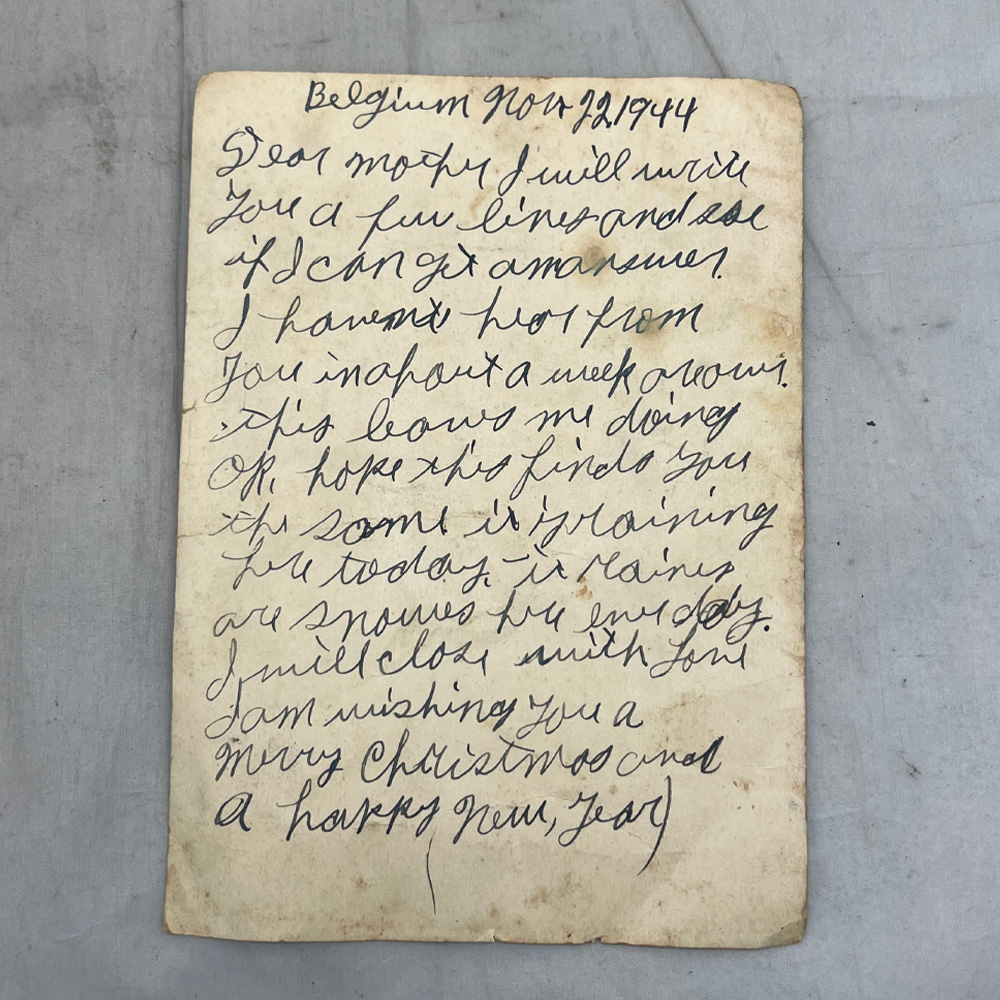 Belgium Nov 22 1944
Dear mother I will write
you a few lines and see
if I can get a mananswer.
I havent hear from
you in about a week are our.
this leaves me doing
OK, hope this finds you
the same it is raining
here today. it raines
are snowes here ever day.
I will close with Love
I am wishing you a
Merry Christmas and
a happy New, Year)